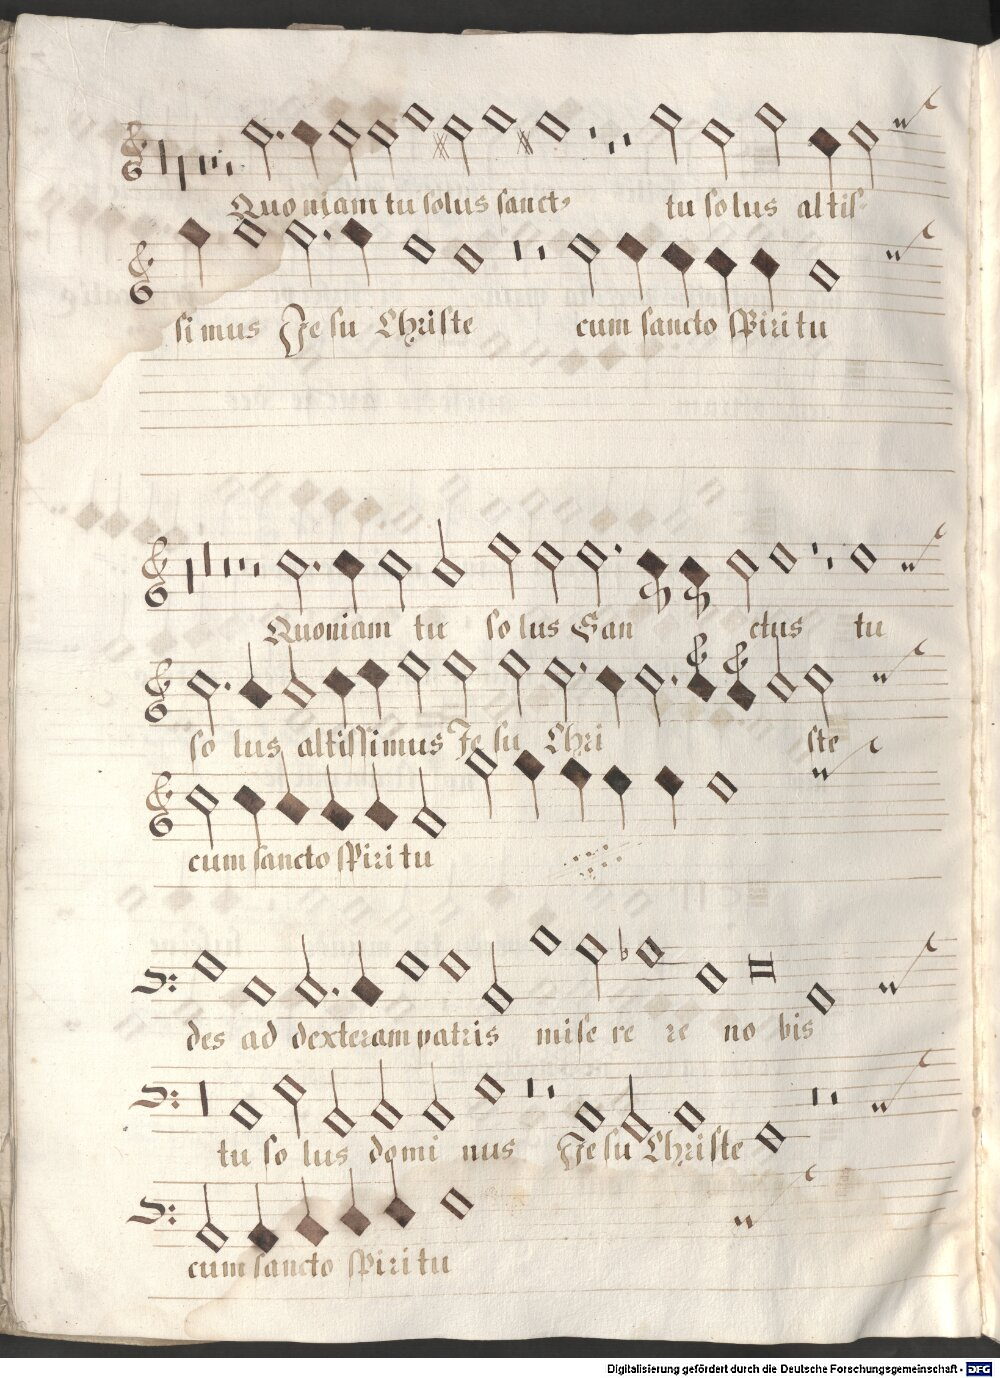 Quoniam tu solus sanct9 tu solus altis-
simus Jesu Christe cum sancto spiritu
Quoniam tu solus San ctus tu
so lus altissimus Je su Chri ste
cum sancto spiritu
des ad dexteram patris mise re re no bis
tu so lus domi nus Jesu Christe
cum sancto spiritu
Digitalisierung gefördert durch die Deutsche Forschungsgemeinschaft - DFG